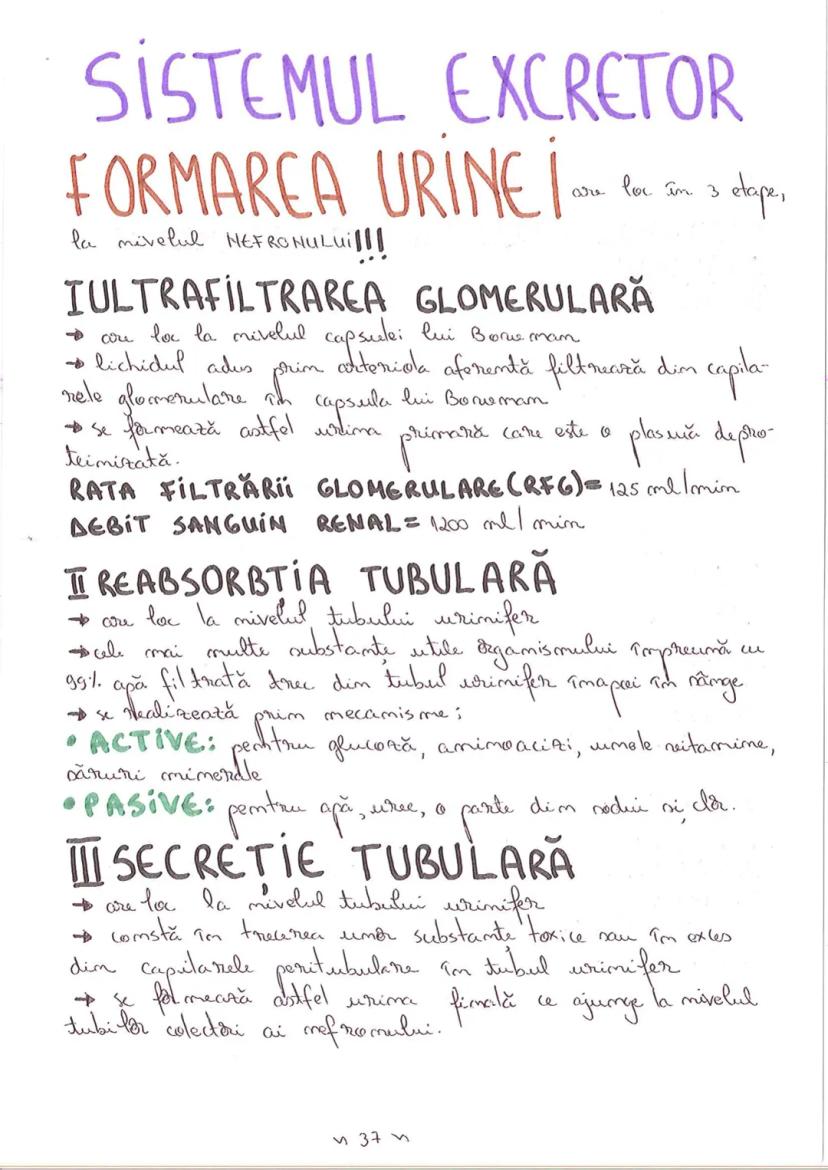 SISTEMUL EXCRETOR
FORMAREA URINEI are loc în 3 etape,
la nivelul NEFRONULUI!!!
I ULTRAFILTRAREA GLOMERULARĂ
→ are loc la nivelul capsulei lui Bowman
→ lichidul adus prin arteriola aferentă filtrează din capila-
rele glomerulare în capsula lui Bowman
→ se formează astfel urina primară care este o plasmă depro-
teinizată.
RATA FILTRĂRII GLOMERULARE (RFG) = 125 ml/min
DEBIT SANGUIN RENAL = 1200 ml/min
II REABSORBTIA TUBULARĂ
→ are loc la nivelul tubului urinifer
→ cele mai multe substanțe utile organismului împreună cu
99% apă filtrată trec din tubul urinifer înapoi în sânge
→ se realizează prin mecanisme:
• ACTIVE: pentru glucoză, aminoacizi, unele vitamine,
săruri minerale
• PASIVE: pentru apă, uree, o parte din sodiu și clor.
III SECREȚIE TUBULARĂ
→ are loc la nivelul tubului urinifer
→ constă în trecerea unor substanțe toxice sau în exces
din capilarele peritubulare în tubul urinifer
→ se formează astfel urina finală ce ajunge la nivelul
tubilor colectori ai nefronului.
~ 37 ~